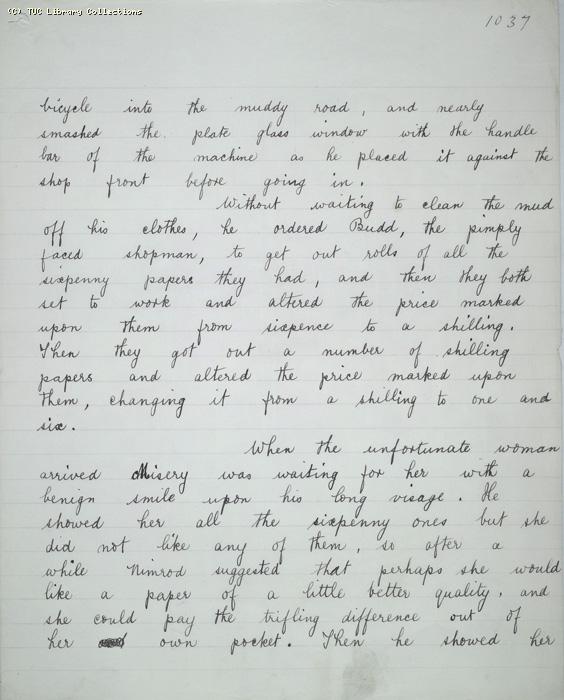 (C) TUC Library Collections
1037
bicycle into the muddy road, and nearly
smashed the plate glass window with the handle
bar of the machine as he placed it against the
shop front before going in.
Without waiting to clean the mud
off his clothes, he ordered Budd, the pimply
faced shopman, to get out rolls of all the
sixpenny papers they had, and then they both
set to work and altered the price marked
upon them from sixpence to a shilling.
Then they got out a number of shilling
papers and altered the price marked upon
them, changing it from a shilling to one and
six.
When the unfortunate woman
arrived Misery was waiting for her with a
benign smile upon his long visage. He
showed her all the sixpenny ones but she
did not like any of them, so after a
while Nimrod suggested that perhaps she would
like a paper of a little better quality, and
she could pay the trifling difference out of
her own pocket. Then he showed her